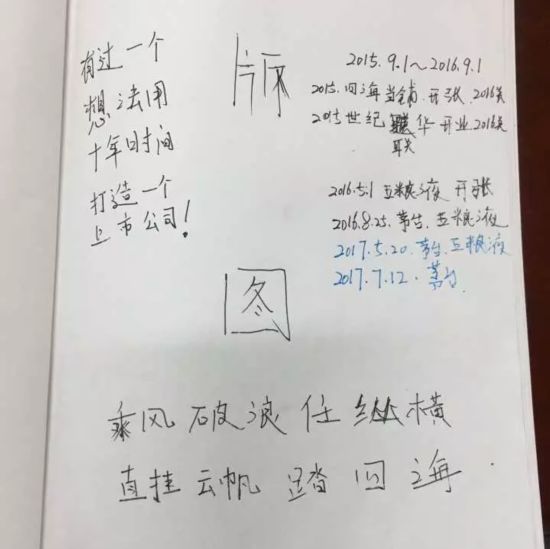 有过一个
想法用
十年时间
打造一个
上市公司!
版
2015.9.1~2016.9.1
2015.四海当铺.开张.2016关
2015世纪华开业2016关
联
2016.5.1 五粮液 开张
2016.8.25.茅台.五粮液
2017.5.20.茅台.五粮液
2017.7.12.茅台
图
乘风破浪任纵横
直挂云帆踏四海.